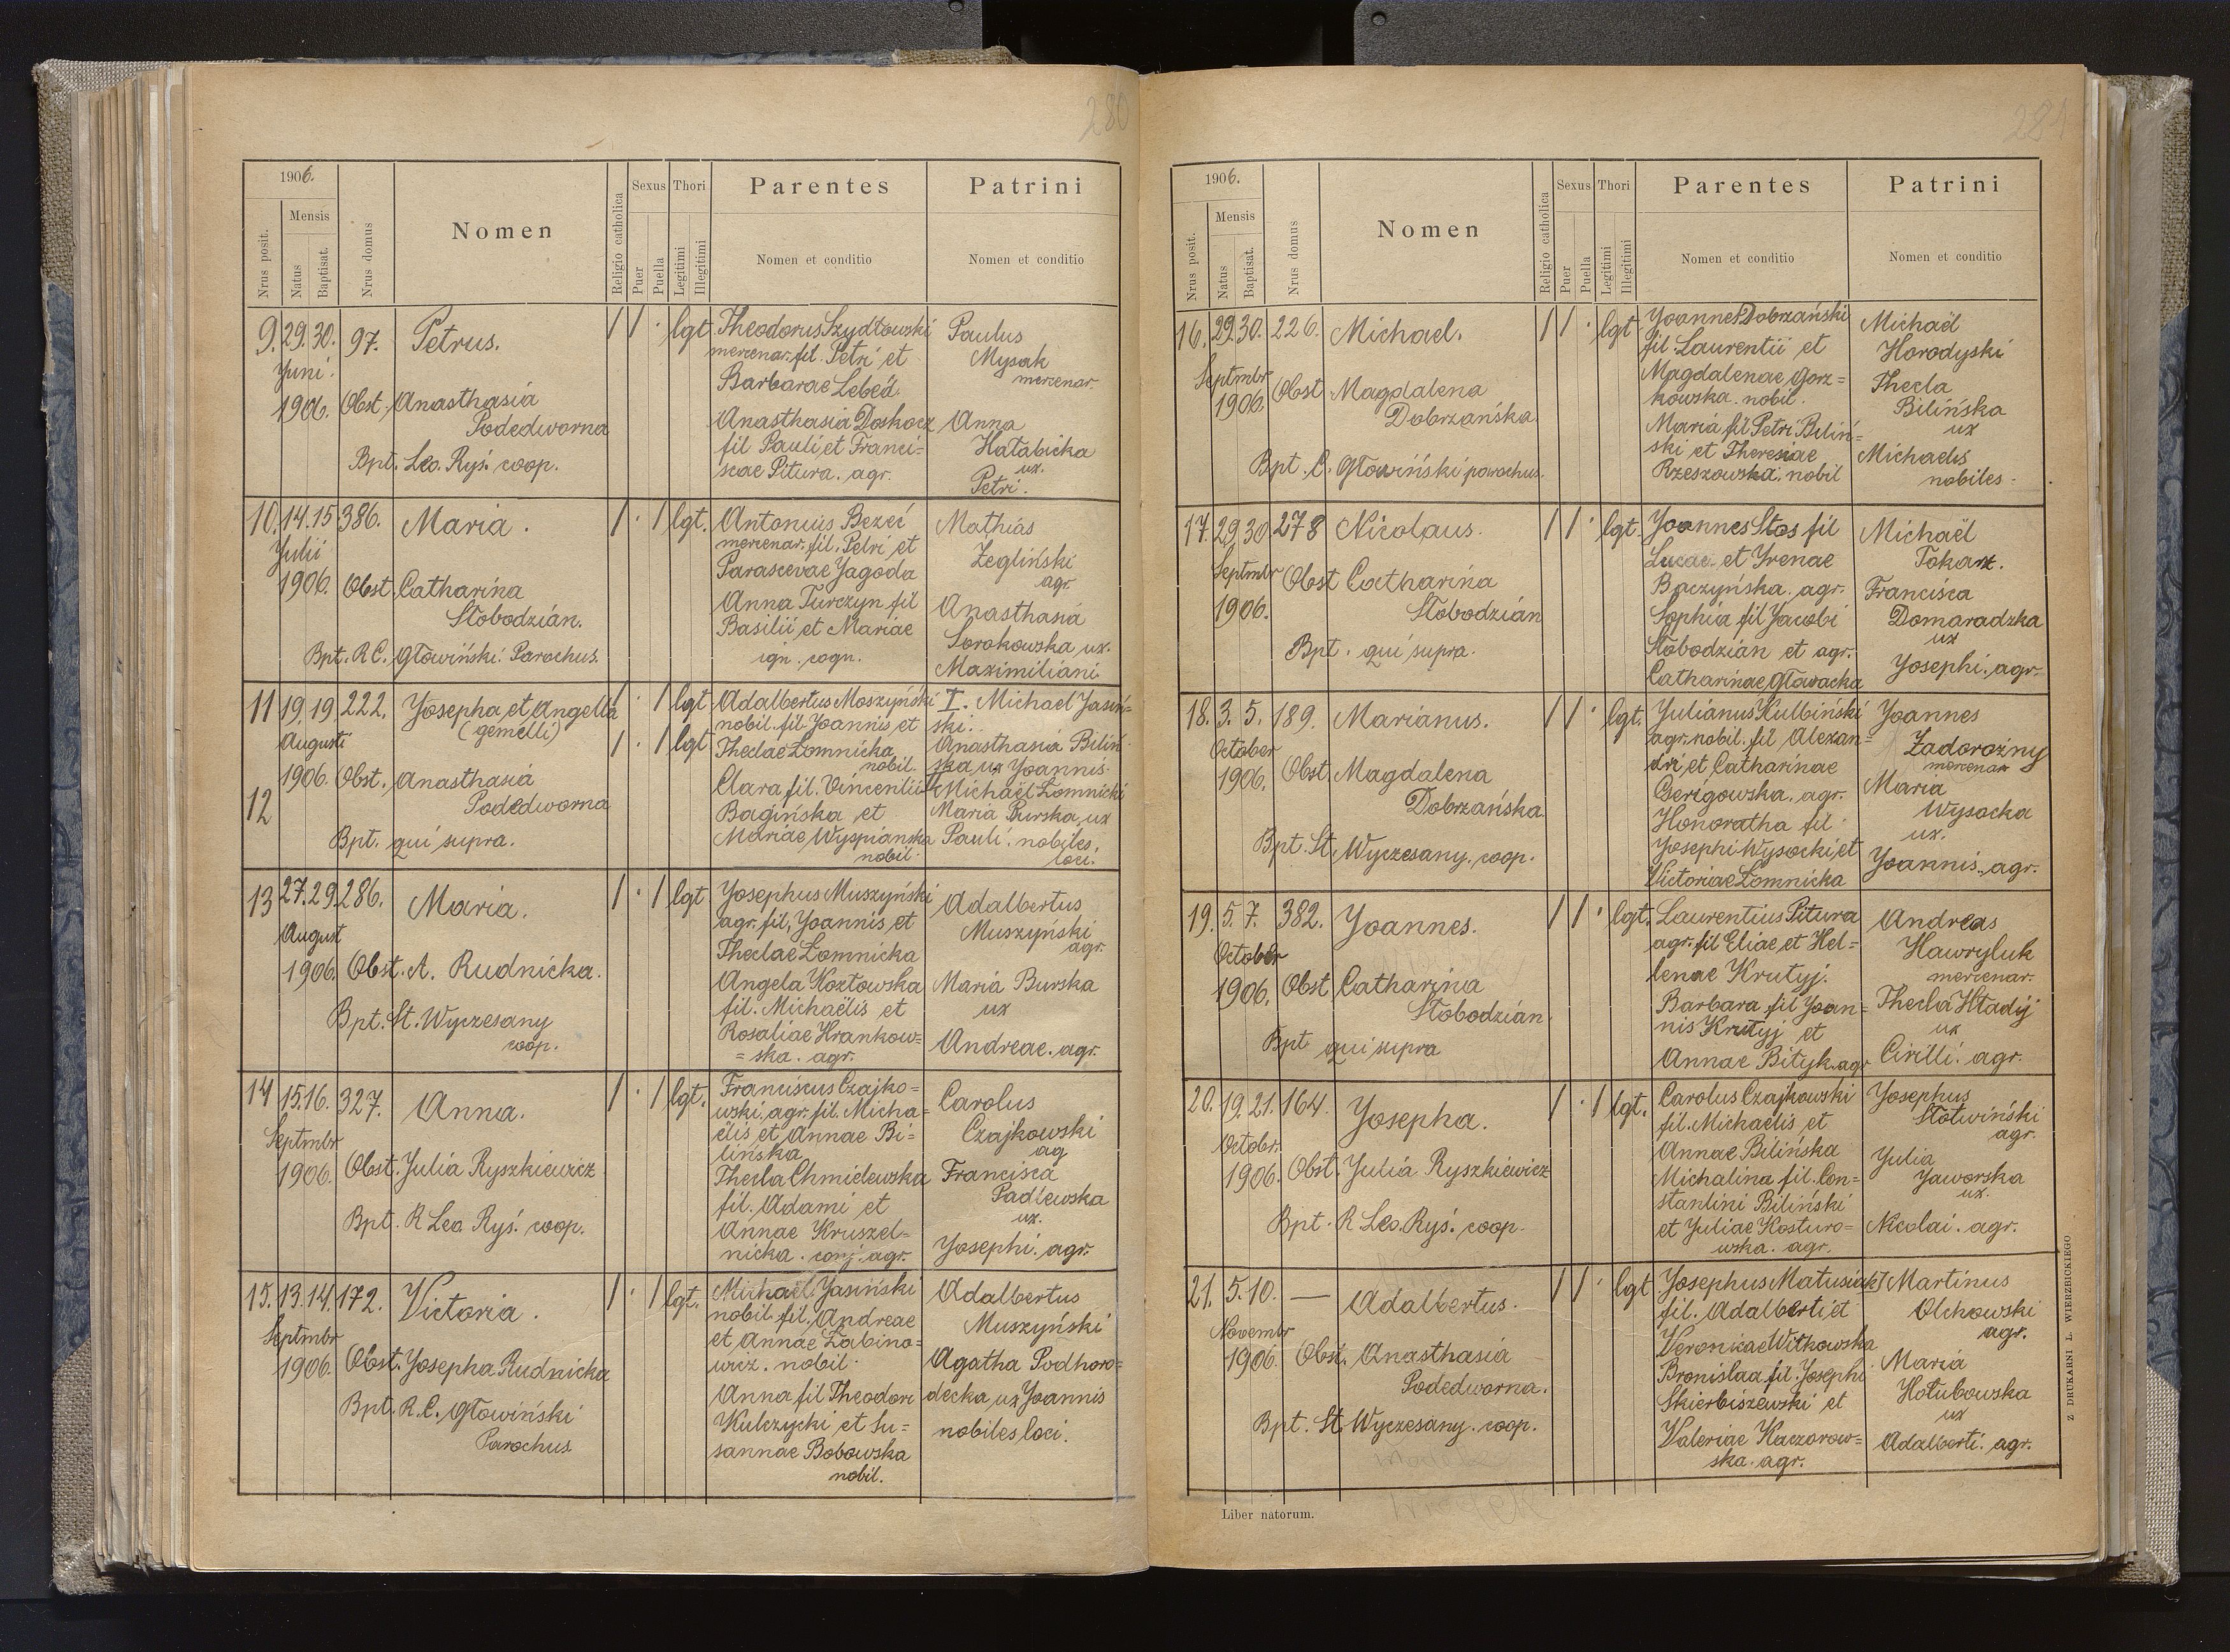 280
1906.
Nrus posit.
Mensis
Natus
Baptisat.
Nrus domus
Nomen
Religio catholica
Sexus
Puer
Puella
Thori
Legitimi
Illegitimi
Parentes
Nomen et conditio
Patrini
Nomen et conditio
9. 29. 30. 97. Petrus.
Juni.
1906. Obst. Anasthasia
Podedworna
Bpt. Leo. Ryś. coop.
/ / · lgt
Theodorus Szydłowski
mercenar. fil. Petri et
Barbarae Lebeď.
Anasthasia Doskocz
fil Pauli et Franci=
scae Pitura. agr.
Paulus
Mysak
mercenar.
Anna
Hałabicka
ux.
Petri.
10. 14. 15 386. Maria.
Julii
1906. Obst. Catharina
Słobodzian.
Bpt. R C. Głowiński. Parochus.
/ · / lgt.
Antonius Bezeć
mercenar. fil. Petri et
Parascevae Jagoda
Anna Turczyn fil
Basilii et Mariae
ign. cogn.
Mathias
Żegliński
agr.
Anasthasia
Sorokowska ux.
Maximiliani
11 19. 19 222. Josepha et Angella
(gemelli)
Augusti
1906. Obst. Anasthasia
12 Podedworna
Bpt. qui supra.
/ · / lgt
/ · / lgt
Adalbertus Moszyński
nobil. fil. Joannis et
Theclae Łomnicka
nobil.
Clara fil. Vincentii
Bagińska et
Mariae Wyspiańska
nobil.
I. Michael Jasiń=
ski.
Anasthasia Biliń
ska ux Joannis.
II Michaël Łomnicki
Maria Burska, ux
Pauli. nobiles,
loci.
13 27. 29 286. Maria.
August
1906. Obst. A. Rudnicka.
Bpt. St. Wyczesany
coop.
/ · / lgt
Josephus Muszyński
agr. fil, Joannis et
Theclae Łomnicka
Angela Kozłowska
fil. Michaëlis et
Rosaliae Hrankow=
= ska. agr.
Adalbertus
Muszyński
agr.
Maria Burska
ux
Andreae. agr.
14 15. 16. 327. Anna.
Septmbr
1906. Obst. Julia Ryszkiewicz
Bpt. R Leo. Ryś. coop.
/ · / lgt.
Franciscus Czajko=
wski, agr. fil. Micha=
ëlis et Annae Bi=
lińska
Thecla Chmielewska
fil. Adami et
Annae Kruszel=
nicka. conj. agr.
Carolus
Czajkowski
ag
Francisca
Padlewska
ux.
Josephi. agr.
15. 13. 14. 172. Victoria.
Septmbr
1906. Obst. Josepha Rudnicka
Bpt. R. C. Głowiński
Parochus
/ · / lgt.
Michaël Jasiński
nobil fil. Andreae
et Annae Łabino=
wicz. nobil.
Anna fil Theodori
Kulczycki et Su=
sannae Bobowska
nobil.
Adalbertus
Muszyński
Agatha Podhoro=
decka, ux Joannis
nobiles loci.
281
1906.
Nrus posit.
Mensis
Natus
Baptisat.
Nrus domus
Nomen
Religio catholica
Sexus
Puer
Puella
Thori
Legitimi
Illegitimi
Parentes
Nomen et conditio
Patrini
Nomen et conditio
16. 29. 30. 226. Michael.
Septmbr
1906. Obst Magdalena
Dobrzańska
Bpt. C. Głowiński parochus.
/ / · lgt
Joannes Dobrzański
fil Laurentii et
Magdalenae Gorz=
kowska. nobil.
Maria fil Petri Biliń=
ski et Theresiae
Rzeszowska. nobil
Michaël
Horodyski
Thecla
Bilińska
ux
Michaelis
nobiles.
17. 29. 30 278 Nicolaus.
Septmbr
1906. Obst Catharina
Słobodzian
Bpt. qui supra.
/ / · lgt.
Joannes Stos fil
Lucae et Irenae
Baczyńska. agr.
Sophia fil Jacobi
Słobodzian et agr.
Catharinae Głowacka
Michaël
Tokarz.
Francisca
Domaradzka
ux
Josephi. agr.
18. 3. 5. 189. Marianus.
October
1906. Obst Magdalena
Dobrzańska.
Bpt. St. Wyczesany. coop.
/ / · lgt.
Julianus Kulbiński
agr. nobil. fil Alexan=
dri et Catharinae
Gerigowska. agr.
Honoratha fil
Josephi Wysocki, et
Victoriae Łomnicka
Joannes
Zadorożny
mercenar
Maria
Wysocka
ux.
Joannis. agr.
19. 5. 7. 382. Joannes.
October
1906. Obst Catharina
Słobodzian.
Bpt qui supra
/ / · lgt.
Laurentius Pitura
agr. fil Eliae et Hel=
lenae Krutyj.
Barbara fil Joan=
nis Krutyj et
Annae Bityk. agr
Andreas
Hawryluk
mercenar.
Thecla Hładij
ux
Cirilli. agr.
20. 19. 21. 164. Josepha.
Octobr.
1906. Obst. Julia Ryszkiewicz
Bpt. R Leo. Ryś. coop.
/ · / lgt.
Carolus Czajkowski
fil. Michaelis et
Annae Bilińska
Michalina fil. Con=
stantini Biliński
et Juliae Kosturo=
wska. agr.
Josephus
Słotwiński
agr.
Julia
Jaworska
ux.
Nicolai. agr.
21. 5. 10. — Adalbertus.
Novembr
1906. Obst. Anasthasia
Podedworna.
Bpt. St. Wyczesany. coop.
/ / · lgt
Josephus Matusiak
fil. Adalberti et
Veronicae Witkowska
Bronislaa fil. Josephi
Skierbiszewski et
Valeriae Kaczorow=
ska. agr.
Martinus
Olchowski
agr.
Maria
Hołubowska
ux
Adalberti. agr.
Liber natorum.
Z DRUKARNI L. WIERZBICKIEGO